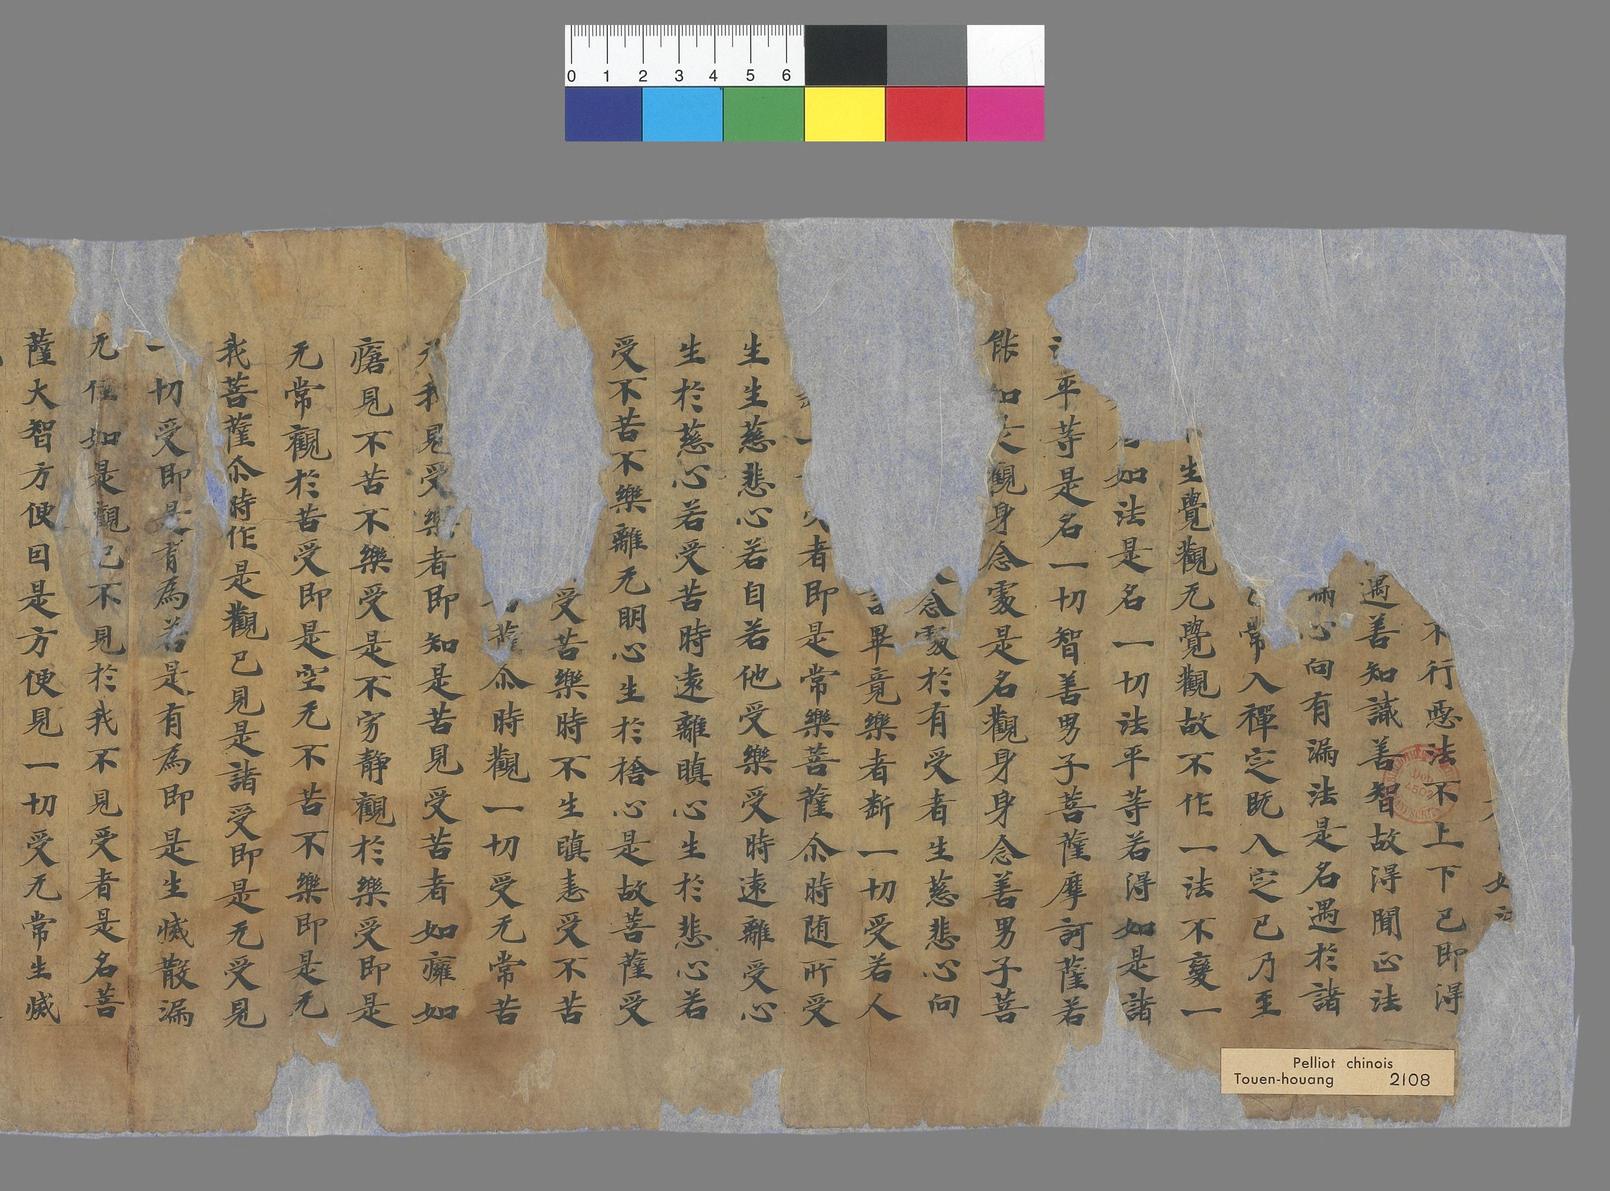 0 1 2 3 4 5 6
如法
不行惡法不上下已即得
遇善知識善智故得聞正法
心向有漏法是名遇於諸
常入禪定既入定已乃至
生覺觀无覺觀故不作一法不變一
如法是名一切法平等若得如是諸
平等是名一切智善男子菩薩摩訶薩若
能如是觀身念處是名觀身身念善男子菩
念處於有受者生慈悲心向
畢竟樂者斷一切受若人
者即是常樂菩薩尒時随所受
生生慈悲心若自若他受樂受時遠離受心
生於慈心若受苦時遠離瞋心生於悲心若
受不苦不樂離无明心生於捨心是故菩薩受
受苦樂時不生瞋恚受不苦
薩尒時觀一切受无常苦
我見受樂者即知是苦見受苦者如癰如
瘡見不苦不樂受是不穷静觀於樂受即是
无常觀於苦受即是空无不苦不樂即是无
我菩薩尒時作是觀已見是諸受即是无受見
一切受即是有為若是有為即是生滅散漏
无住如是觀已不見於我不見受者是名菩
薩大智方便因是方便見一切受无常生滅
Pelliot chinois
Touen-houang 2108